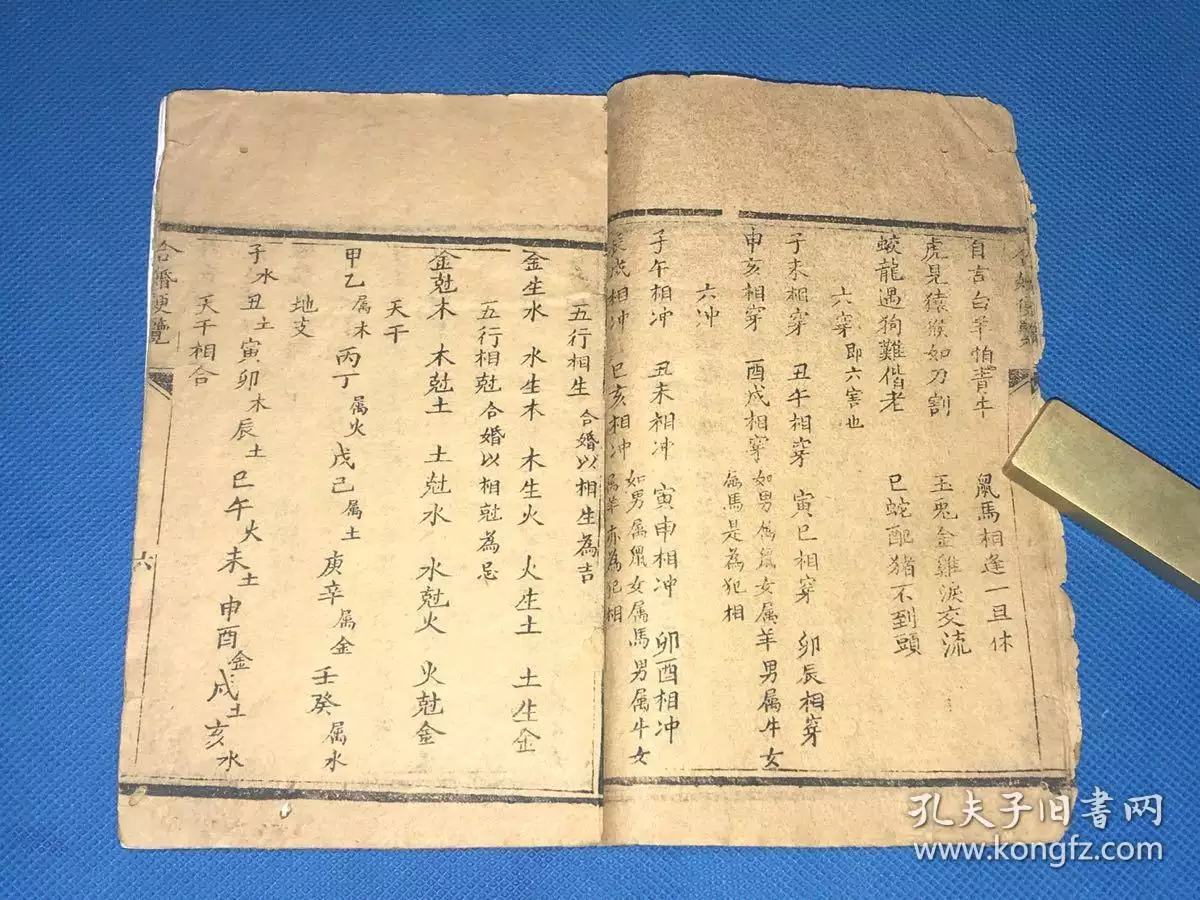 自古白羊怕青牛 鼠馬相逢一旦休
虎見猿猴如刀割 玉兎金雞淚交流
蛟龍遇狗難偕老 巳蛇配猪不到頭
六穿即六害也
子未相穿 丑午相穿 寅巳相穿 卯辰相穿
申亥相穿 酉戌相穿 如男属鼠女属羊男属牛女
属馬是為犯相
六沖
子午相冲 丑未相冲 寅申相冲 卯酉相冲
辰戌相冲 巳亥相冲 如男属鼠女属馬男属牛女
属羊亦為犯相
五行相生 合婚以相生為吉
金生水 水生木 木生火 火生土 土生金
五行相尅合婚以相尅為忌
金尅木 木尅土 土尅水 水尅火 火尅金
天干
甲乙属木 丙丁属火 戊己属土 庚辛属金 壬癸属水
地支
子水丑土寅卯木辰土巳午火未土申酉金戌土亥水
天干相合
合婚便覽
六
孔夫子旧书网
www.kongfz.com